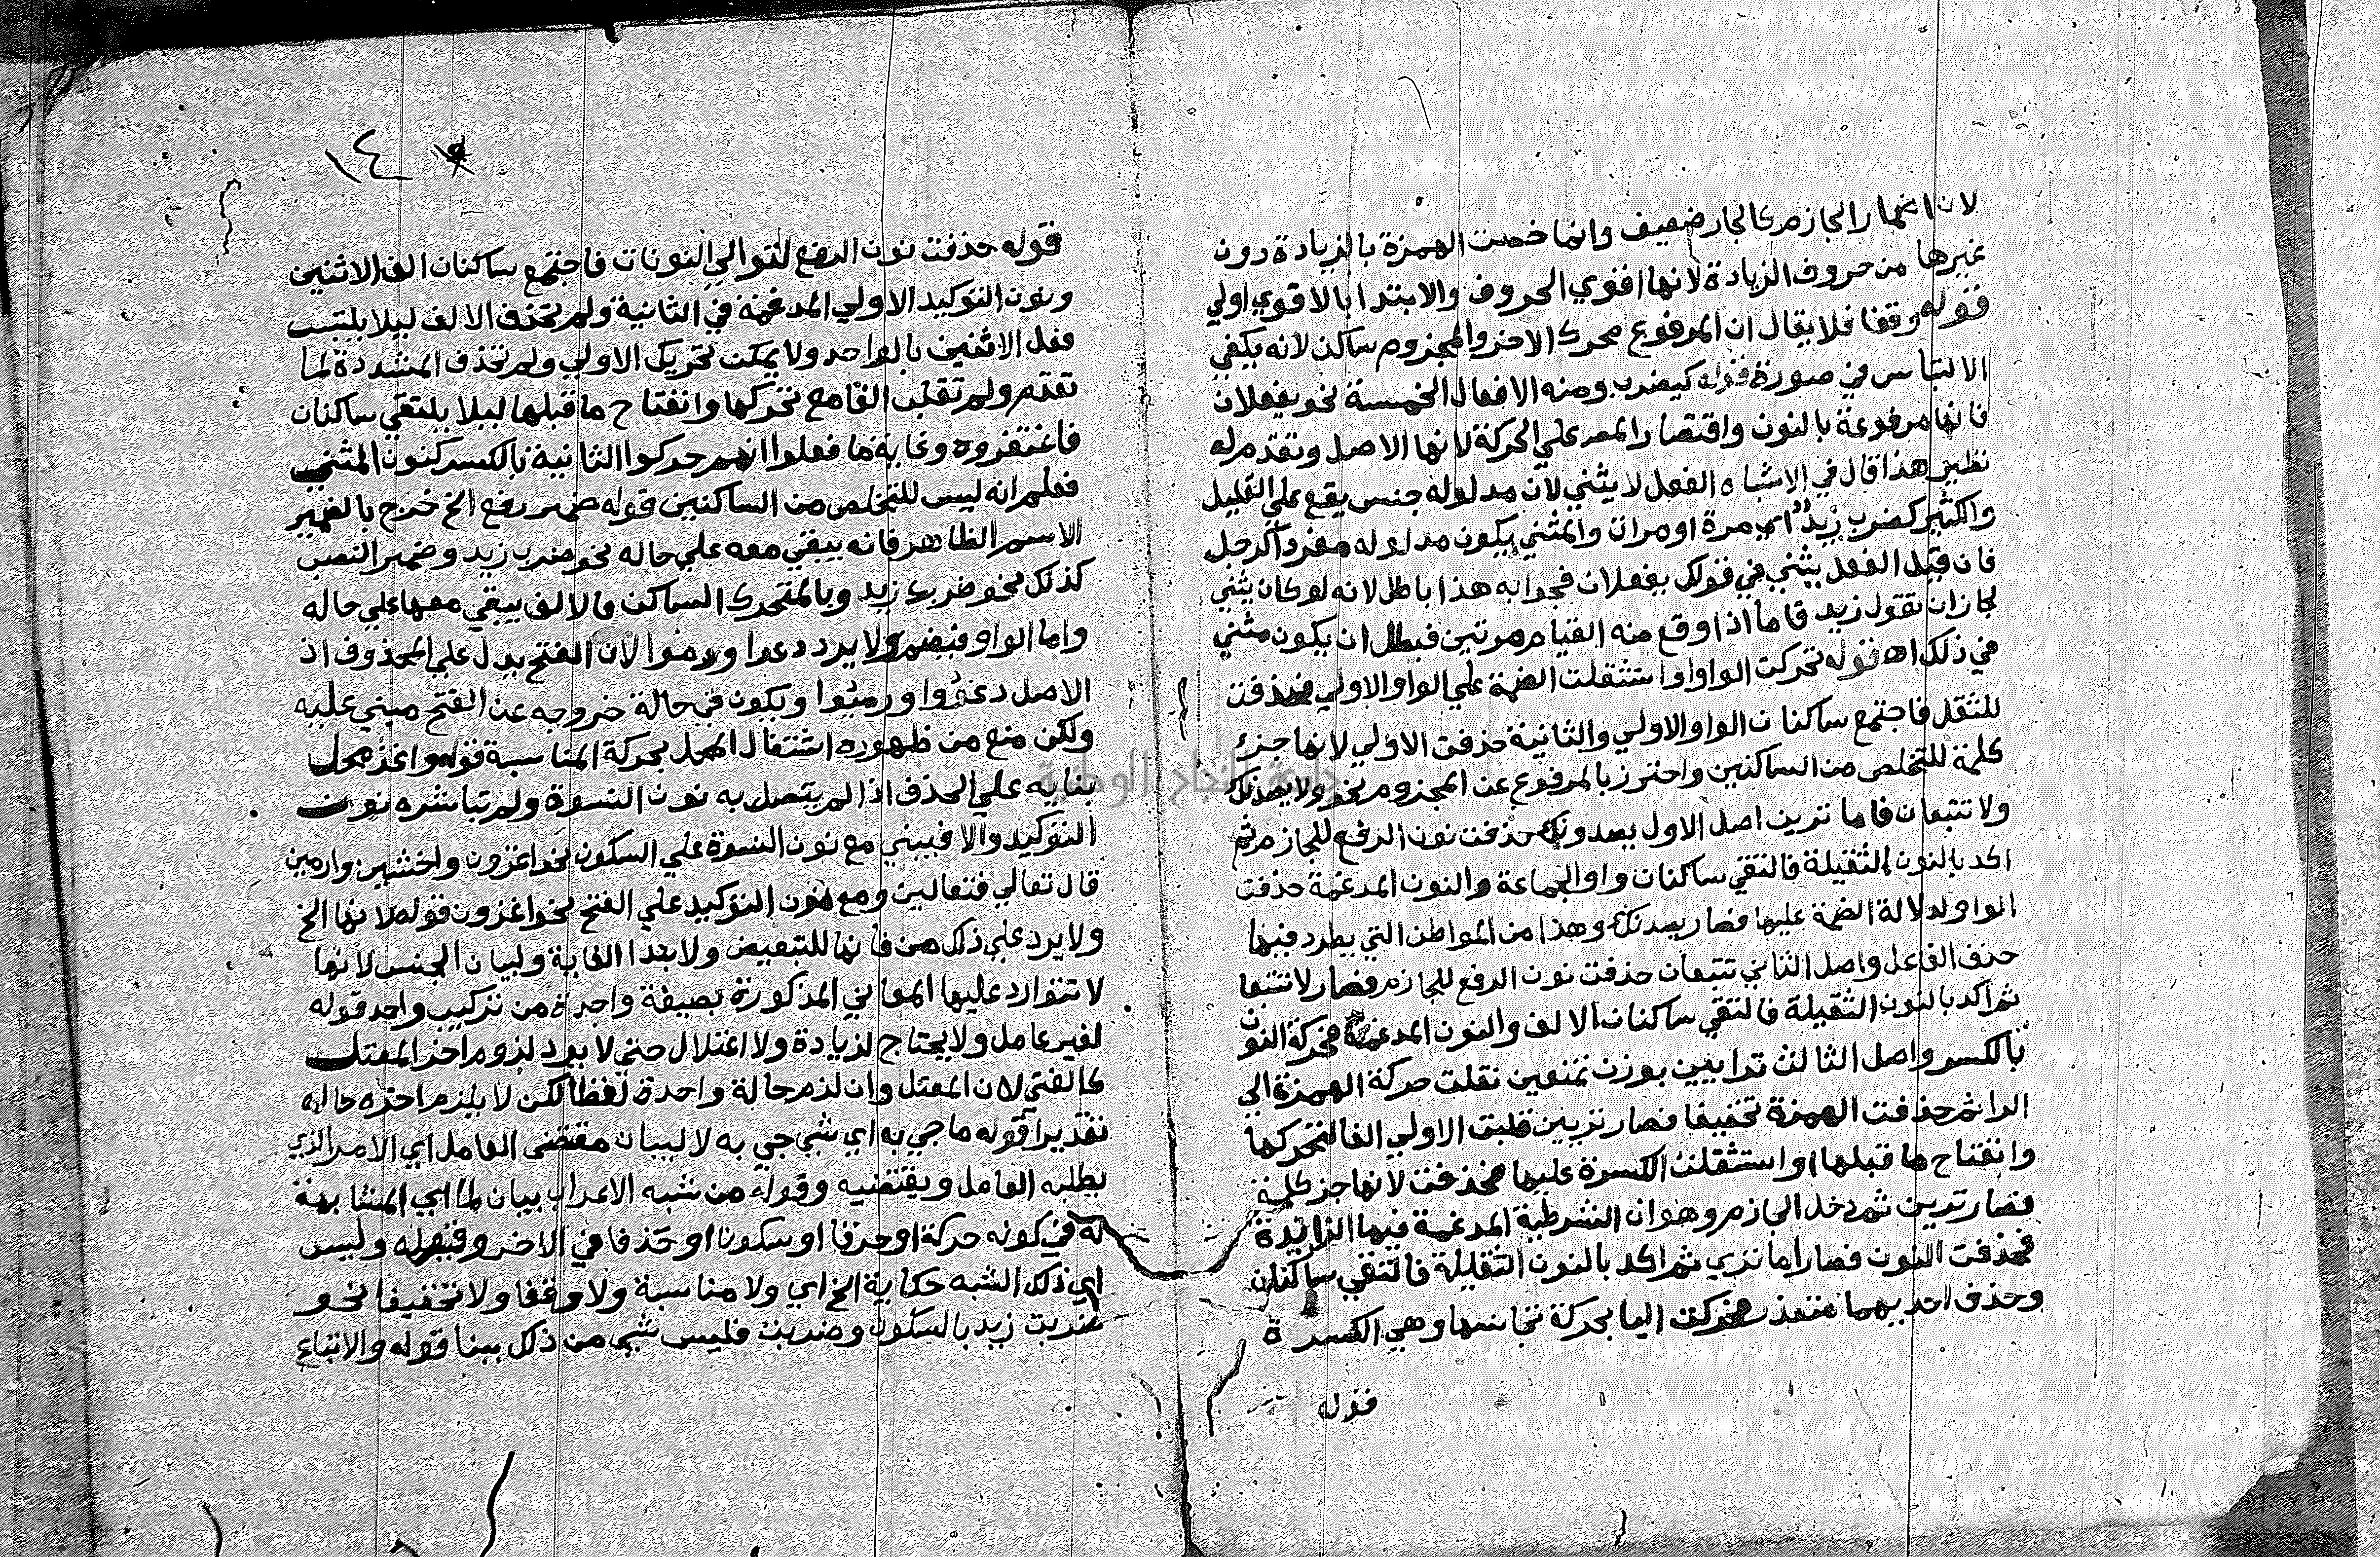 لان اضمار الجازم كالجار ضعيف وانما خصت الهمزة بالزيادة دون
غيرها من حروف الزيادة لانها اقوي الحروف والابتدا بالاقوي اولي
قوله وقفا فلا يقال ان المرفوع محرك الاخر والمجزوم ساكن لانه يكفي
الالتباس في صورة قوله كيضرب ومنه الافعال الخمسة نحو يفعلان
فانها مرفوعة بالنون واقتصار المص علي الحركة لانها الاصل وتقدم له
نظير هذا قال في الاشباه الفعل لا يثني لان مدلوله جنس يقع علي القليل
والكثير كضرب زيد اي مرة او مرات والمثني يكون مدلوله مفردا كرجل
فان قيل الفعل يثني في قولك يفعلان فجوابه هذا باطل لانه لو كان يثني
لجاز ان تقول زيد قاما اذا وقع منه القيام مرتين فبطل ان يكون مثني
في ذلك اه قوله تحركت الواو او استثقلت الضمة علي الواو الاولي فحذفت
للثقل فاجتمع ساكنان الواو الاولي والثانية حذفت الاولي لانها جزء
كلمة للتخلص من الساكنين واحترز بالمرفوع عن المجزوم نحو ولا يصدنك
ولا تتبعان فاما ترين اصل الاول يصدونك حذفت نون الرفع للجازم ثم
اكد بالنون الثقيلة فالتقي ساكنان واو الجماعة والنون المدغمة حذفت
الواو لدلالة الضمة عليها فصار يصدنك وهذا من المواطن التي يطرد فيها
حذف الفاعل واصل الثاني تتبعان حذفت نون الرفع للجازم فصار لا تتبعا
ثم اكد بالنون الثقيلة فالتقي ساكنان الالف والنون المدغمة فحركة النون
بالكسر واصل الثالث ترايين بوزن تمنعين نقلت حركة الهمزة الي
الرا ثم حذفت الهمزة تخفيفا فصار تريين قلبت الاولي الفا لتحركها
وانفتاح ما قبلها او استثقلت الكسرة عليها فحذفت لانها جز كلمة
فصار ترين ثم دخل الجازم وهو ان الشرطية المدغمة فيها الزائدة
فحذفت النون فصار اما تري ثم اكد بالنون الثقيلة فالتقي ساكنان
وحذف احديهما متعذر فحركت اليا بحركة تجانسها وهي الكسرة
قوله
١٤
قوله حذفت نون الرفع لتوالي النونات فاجتمع ساكنان الف الاثنين
ونون التوكيد الاولي المدغمة في الثانية ولم تحذف الالف ليلا يلتبس
فعل الاثنين بالواحد ولا يمكن تحريك الاولي ولم تحذف المشددة لما
تقدم ولم تقلب الفا مع تحركها وانفتاح ما قبلها ليلا يلتقي ساكنان
فاغتفروه وغاية ما فعلوا انهم حركوا الثانية بالكسر كنون المثني
فعلم انه ليس للتخلص من الساكنين قوله ضمير رفع الخ خرج بالضمير
الاسم الظاهر فانه يبقي معه علي حاله نحو ضرب زيد وضمير النصب
كذلك نحو ضربك زيد وبالمتحرك الساكن فالالف يبقي معها علي حاله
واما الواو فيضم ولا يرد دعوا ورموا لان الفتح يدل علي المحذوف اذ
الاصل دعووا ورميوا ويكون في حالة خروجه عن الفتح مبني عليه
ولكن منع من ظهوره اشتغال المحل بحركة المناسبة قوله واغز محل
بنايه علي الحذف اذا لم يتصل به نون النسوة ولم تباشره نون
التوكيد والا فيبني مع نون النسوة علي السكون نحو اغزون واخشين وارمين
قال تعالي فتعالين ومع نون التوكيد علي الفتح نحو اغزون قوله لانها الخ
ولا يرد علي ذلك من فانها للتبعيض ولابتدا الغاية ولبيان الجنس لانها
لا تتوارد عليها المعاني المذكورة بصيغة واحدة من تركيب واحد قوله
لغير عامل ولا يحتاج لزيادة ولا اعتلال حتي لا يرد لزوم اخر المعتل
كالفتي لان المعتل وان لزم حالة واحدة لفظا لكن لا يلزم اخره حاله
تقديرا قوله ما جي به اي شي جي به لا لبيان مقتضى العامل اي الامر الذي
يطلبه العامل ويقتضيه وقوله من شبه الاعراب بيان لما اي المشابهة
له في كونه حركة او حرفا او سكونا او حذفا في الاخر وقوله وليس
اي ذلك الشبه حكاية الخ اي ولا مناسبة ولا وقفا ولا تخفيفا نحو
ضربت زيد بالسكون وضربت فليس شي من ذلك ببنا قوله والاتباع